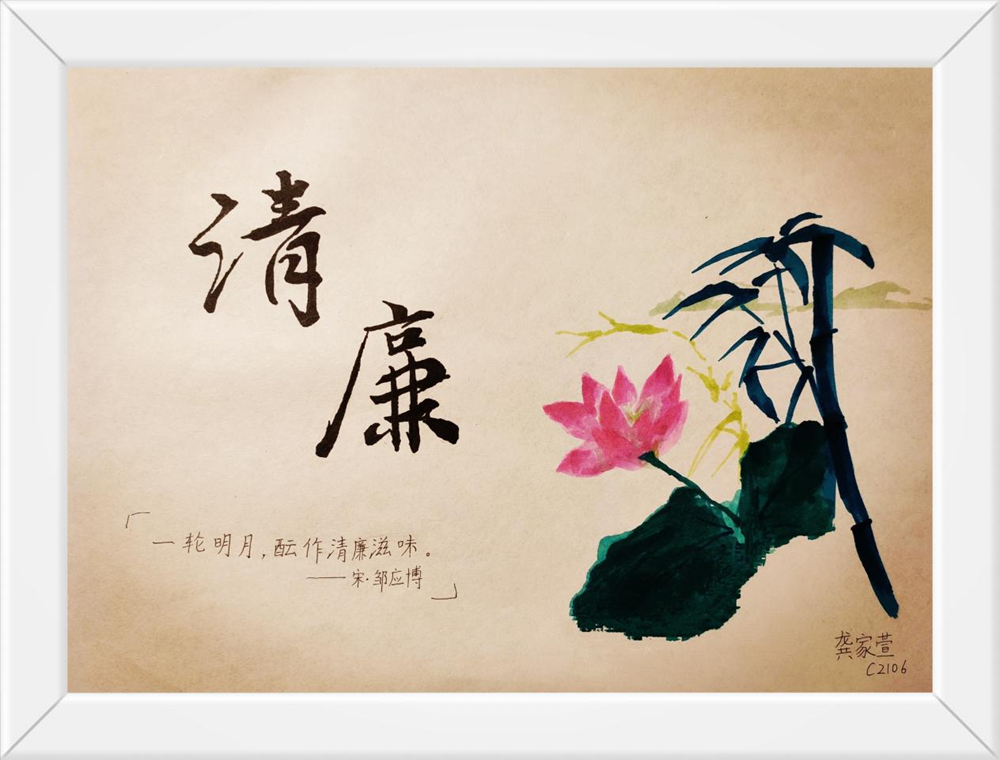 清
廉
「一轮明月，酝作清廉滋味。
——宋·邹应博」
龚家萱
C2106